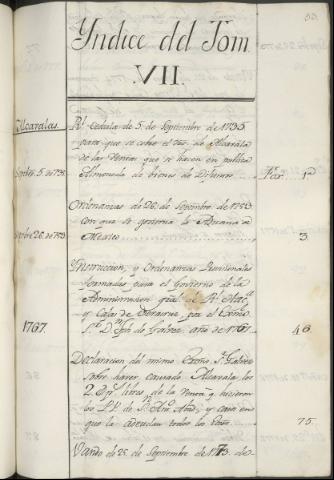 Yndice del Tom
VII.
Alcavalas.
Rl. cedula de 5. de Septiembre de 1735
para que se cobre el dro. de Alcavala
de las Ventas que se hacen en publica
Almoneda de bienes de Difuntos
Septbre. 5. de 735.
Fox. 1
Ordenanzas de 26. de Septiembre de 1753
con que se govierna la Aduana de
Mexico
Septbre 26. de 753.
3.
Ynstruccion, y Ordenanzas Provisionales
formadas para el Govierno de la
Administracion gral. de Rl. Hac.
y Cajas de Veracruz, por el Exmo.
Sr. Dn. Jph. de Galvez año de 1767.
1767.
46.
Declaracion del mismo Exmo. Sr. Galvez
sobre haver causado Alcavala los
que la adeudan todos los
75.
Vando de 25. de Septiembre de 1773. de